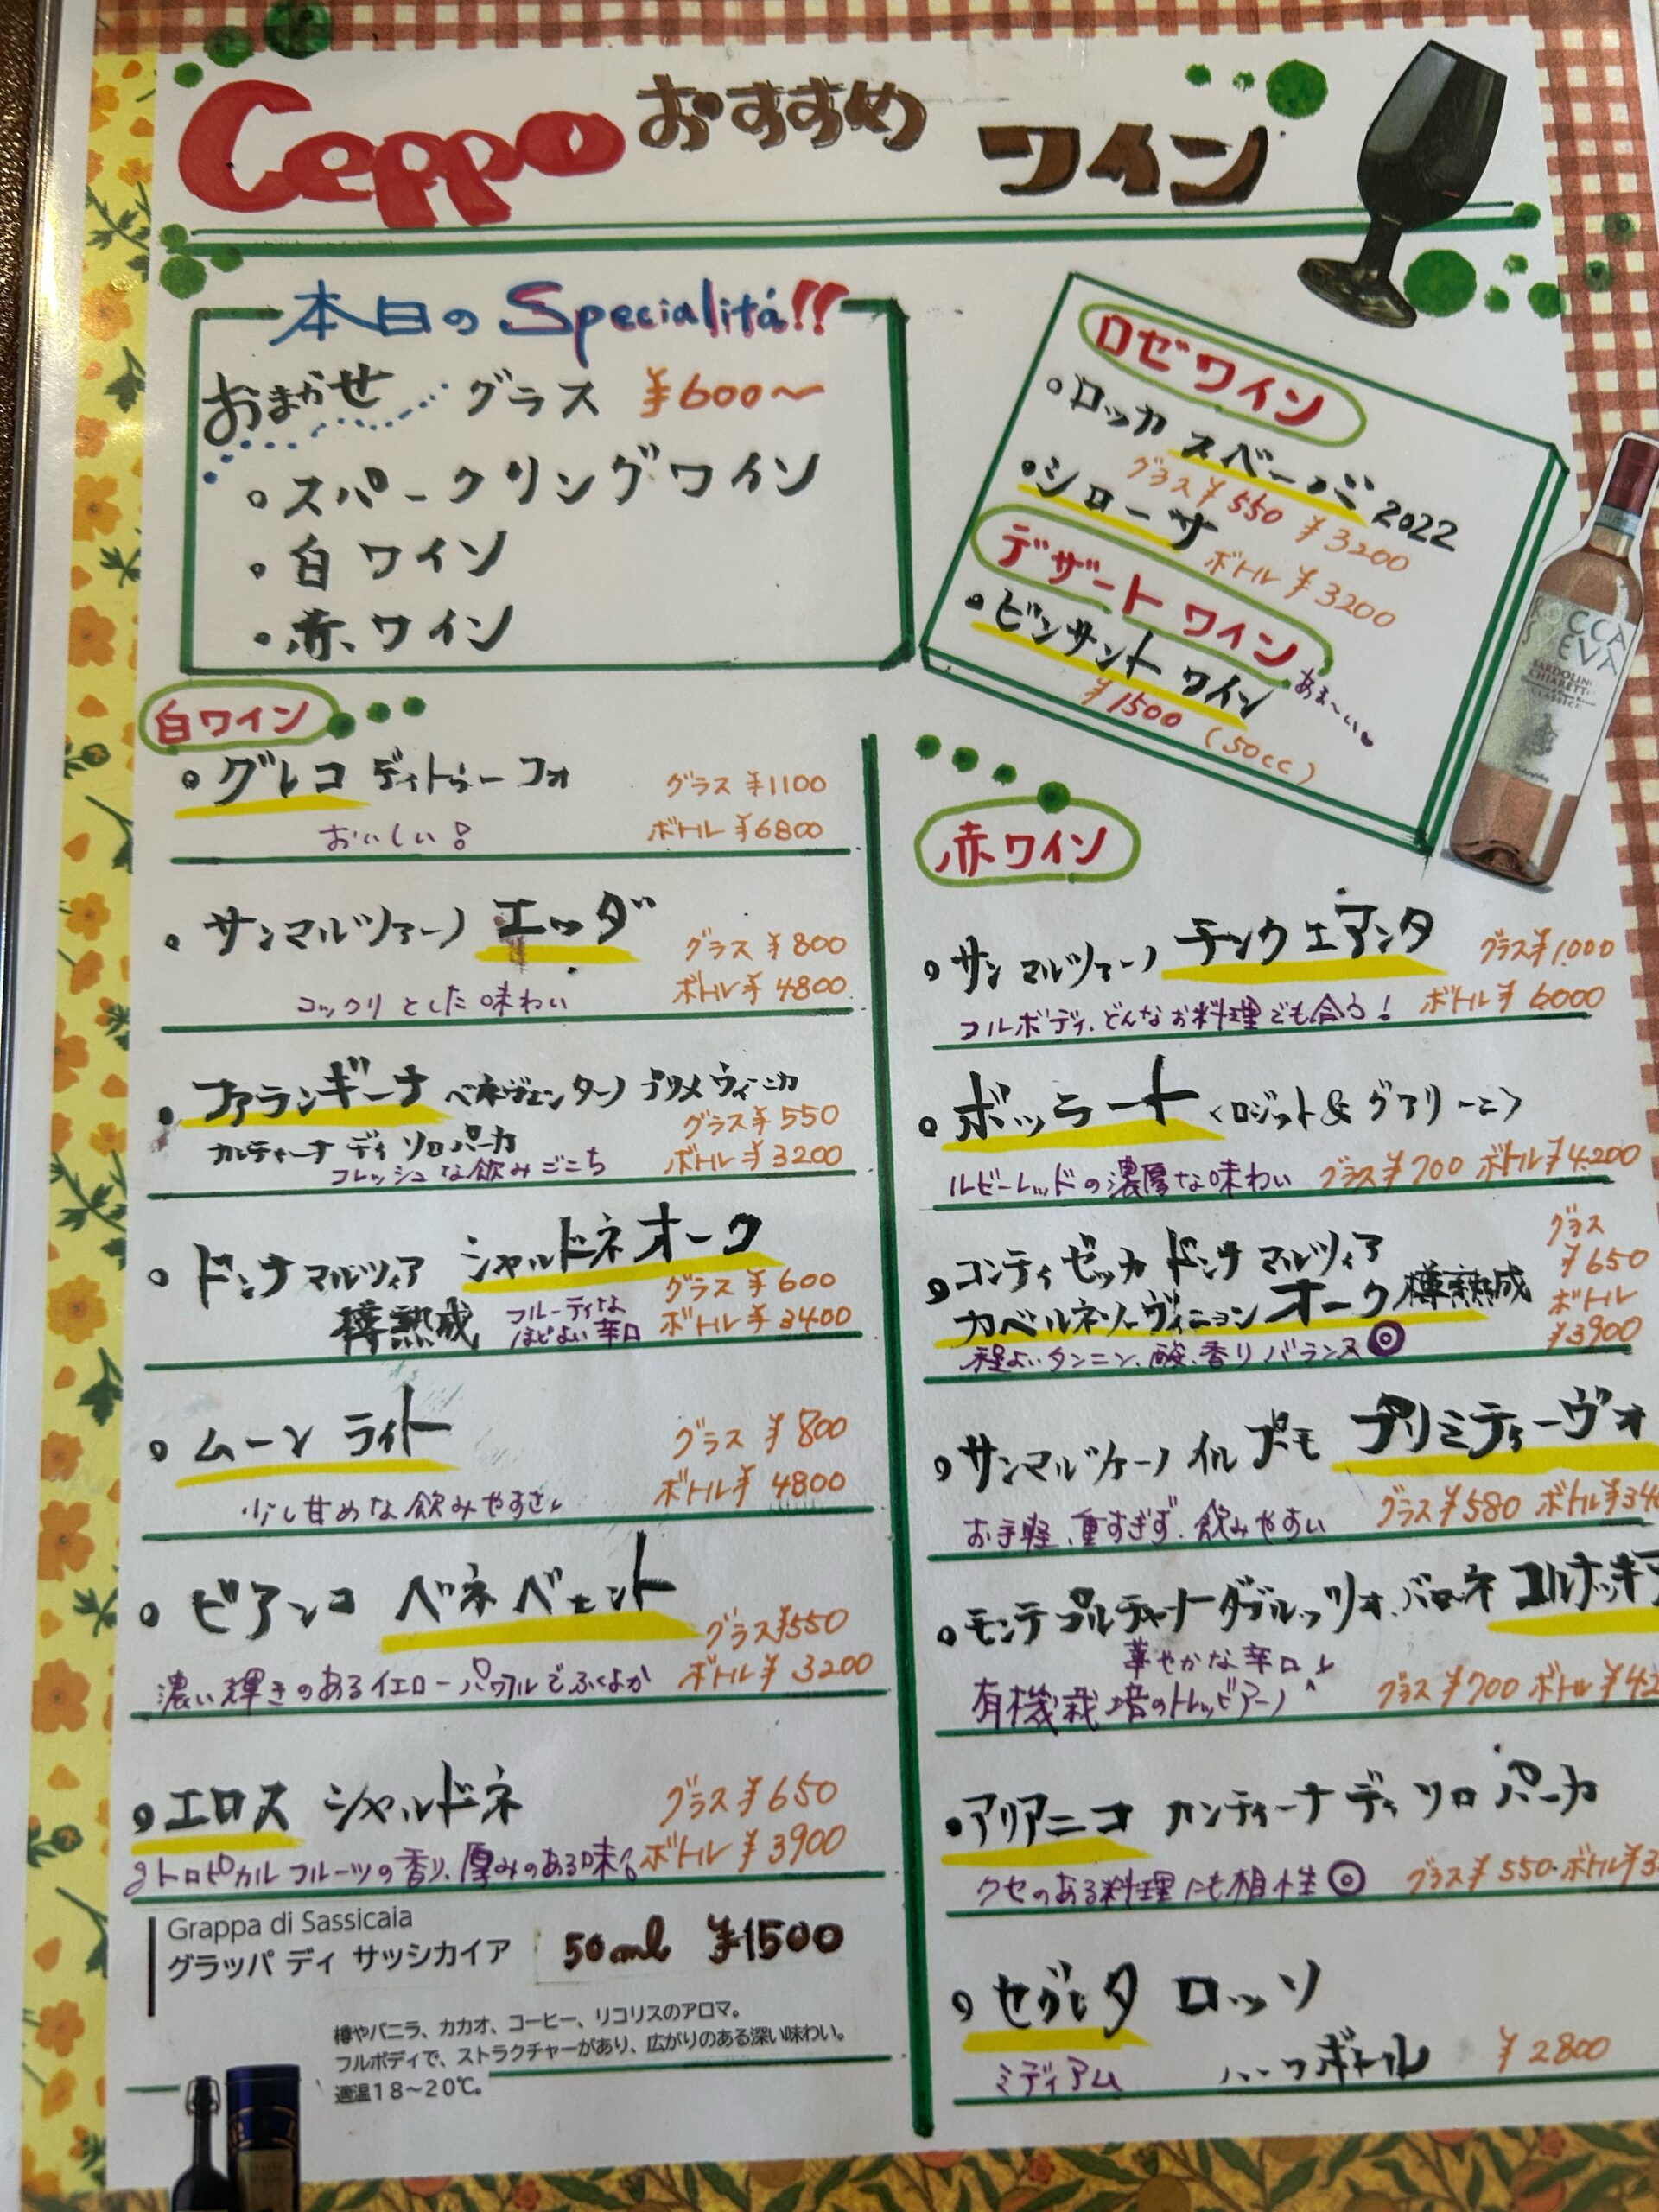 Ceppo おすすめ ワイン
本日の Specialitá!!
おまかせ グラス ¥600〜
・スパークリングワイン
・白ワイン
・赤ワイン
ロゼワイン
・ロッカ スベーバ 2022
グラス¥550 ¥3200
・シローサ
ボトル ¥3200
デザートワイン
あま〜い
・ビンサント ワイン
¥1500 (50cc)
ROCCA
SVEVA
BARDOLINO
CHIARETTO
CLASSICO
白ワイン
・グレコ ディトゥーフォ
グラス ¥1100
おいしい!
ボトル ¥6800
・サンマルツァーノ エッダ
グラス ¥800
コックリとした味わい
ボトル¥ 4800
・ファランギーナ ベネヴェンターノ プリメ ヴィーニカ
グラス¥550
カンティーナ ディ ソロパーカ
フレッシュな飲みごこち
ボトル ¥3200
・ドンナ マルツィア シャルドネ オーク
樽熟成
フルーティな
ほどよい辛口
グラス ¥600
ボトル ¥3400
・ムーン ライト
グラス ¥800
少し甘めな飲みやすさ
ボトル¥ 4800
・ビアンコ ベネベェント
グラス¥550
濃い輝きのあるイエロー パワフルでふくよか
ボトル¥ 3200
・エロス シャルドネ
グラス ¥650
トロピカル フルーツの香り、厚みのある味
ボトル ¥3900
Grappa di Sassicaia
グラッパ ディ サッシカイア
50ml ¥1500
樽やバニラ、カカオ、コーヒー、リコリスのアロマ。
フルボディで、ストラクチャーがあり、広がりのある深い味わい。
適温18〜20℃。
赤ワイン
・サン マルツァーノ チンクエアンタ
グラス¥1,000
フルボディ、どんなお料理でも合う!
ボトル¥ 6000
・ボッラート <ロジット&グアリーニ>
ルビーレッドの濃厚な味わい グラス¥700 ボトル¥4,200
・コンティ ゼッカ ドンナ マルツィア
カベルネソーヴィニョン オーク 樽熟成
グラス
¥650
ボトル
¥3900
程よいタンニン、酸、香り バランス◎
・サンマルツァーノ イル プーモ プリミティーヴォ
お手軽、重すぎず、飲みやすい
グラス ¥580 ボトル¥34
・モンテプルチャーナーダブルッツォ. バローネ コルナッキア
華やかな辛口
有機栽培のトレッビアーノ
グラス ¥700 ボトル ¥42
・アリアニコ カンティーナ ディ ソロ パーカ
クセのある料理にも相性◎
グラス¥ 550・ボトル¥3
・セグレタ ロッソ
ミディアム ハーフボトル ¥2800